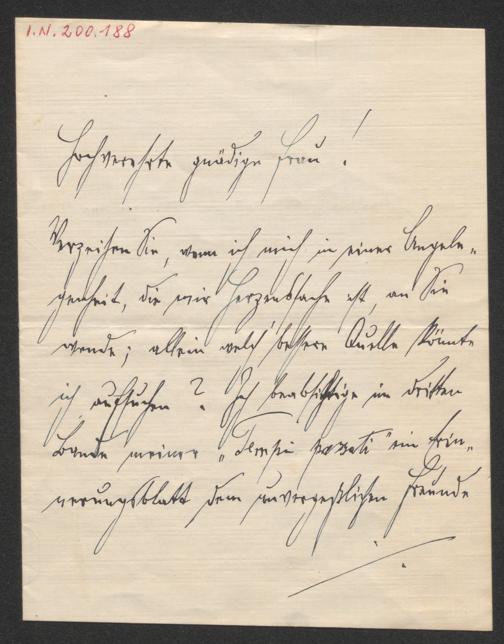 I.N. 200.188
Hochverehrte gnädige Frau!
Verzeihen Sie, wenn ich mich in einer Angele-
genheit, die mir Herzenssache ist, an Sie
wende; allein welch' bessere Quelle könnte
ich aufsuchen? Ich beabsichtige im dritten
Bande meiner „ ein Erin-
nerungsblatt dem unvergeßlichen Freunde